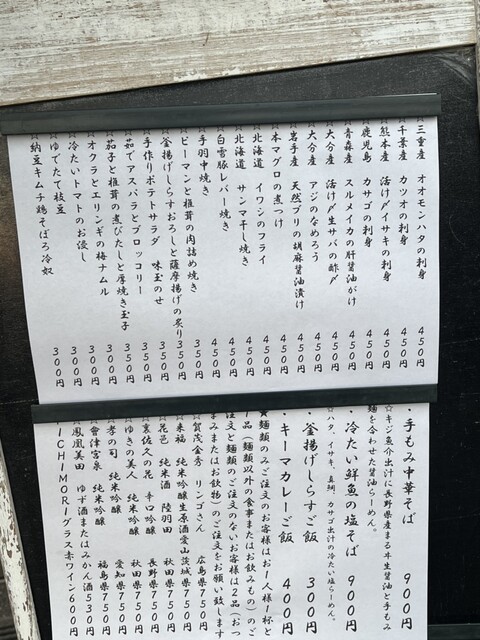 ☆三重産 オオモンハタの刺身 450円
☆千葉産 カツオの刺身 450円
☆熊本産 活け〆イサキの刺身 450円
☆鹿児島 カサゴの刺身 450円
☆青森産 スルメイカの肝醤油がけ 450円
☆大分産 活け〆生サバの酢〆 450円
☆大分産 アジのなめろう 450円
☆岩手産 天然ブリの胡麻醤油漬け 450円
☆本マグロの煮つけ 450円
☆北海道 イワシのフライ 450円
☆北海道 サンマ干し焼き 450円
☆白雪豚レバー焼き 450円
☆手羽中焼き 450円
☆ピーマンと椎茸の肉詰め焼き 350円
☆釜揚げしらすおろしと薩摩揚げの炙り 350円
☆手作りポテトサラダ 味玉のせ 350円
☆茹でアスパラとブロッコリー 350円
☆茄子と椎茸の煮びたしと厚焼き玉子 350円
☆オクラとエリンギの梅ナムル 300円
☆冷たいトマトのお浸し 300円
☆ゆでたて枝豆 300円
☆納豆キムチ鶏そぼろ冷奴 300円
・手もみ中華そば 900円
☆キジ魚介出汁に長野県産まる井生醤油と手もみ
麺を合わせた醤油らーめん。
・冷たい鮮魚の塩そば 900円
☆ハタ、イサキ、真鯛、カサゴ出汁の冷たい塩らーめん。
・釜揚げしらすご飯 300円
・キーマカレーご飯 400円
★麺類のみご注文のお客様はお1人様1杯と
1品(麺類以外の食事またはお飲もの)のご
注文と麺類のご注文のないお客様は2品(おつ
まみまたはお飲物)のご注文をお願い致します
☆賀茂金秀 リンゴさん 広島県750円
☆来福 純米吟醸生原酒愛山茨城県750円
☆花邑 純米酒 陸羽田 秋田県750円
☆裏佐久の花 辛口吟醸 長野県750円
☆ゆきの美人 純米吟醸 秋田県750円
☆孝の司 純米吟醸 愛知県750円
☆會津宮泉 純米吟醸 福島県750円
☆鳳凰美田 ゆず酒またはみかん酒530円
☆ICHIMORIグラス赤ワイン600円